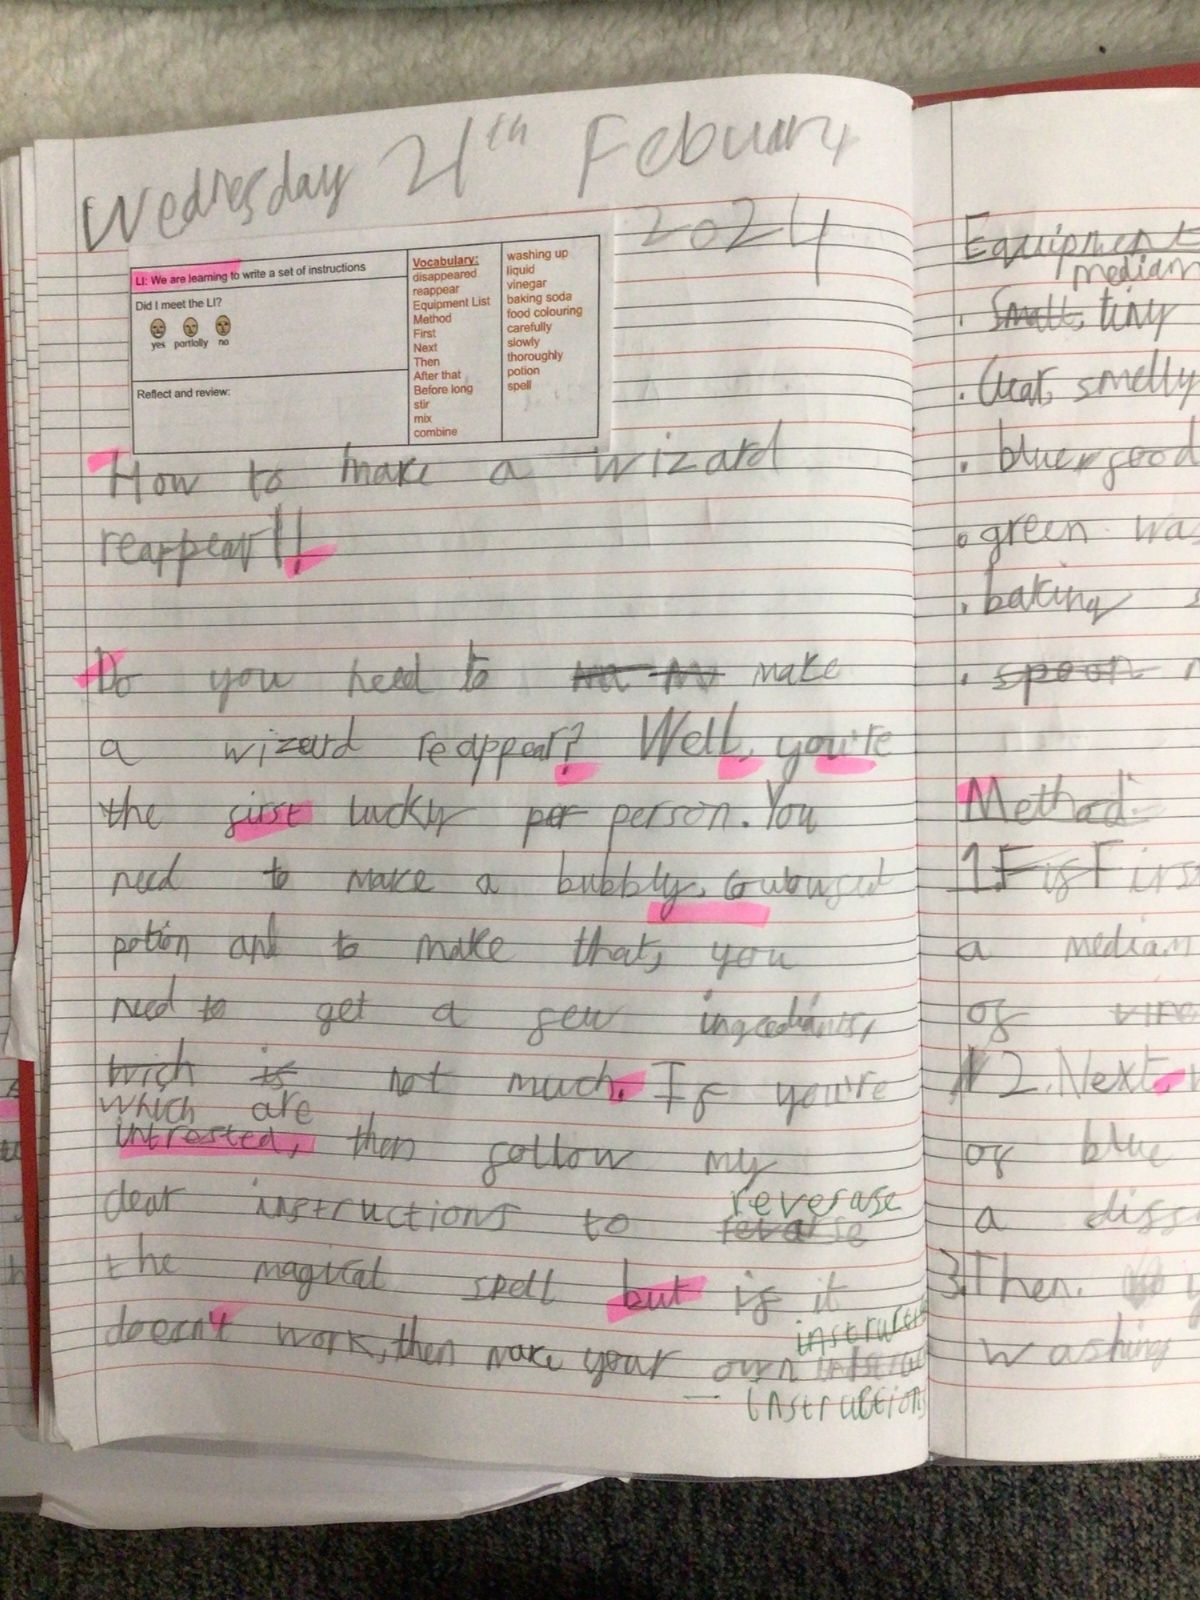 Wednesday 21th Febuary
2024
LI: We are learning to write a set of instructions
Did I meet the LI?
yes partially no
Reflect and review:
Vocabulary:
disappeared
reappear
Equipment List
Method
First
Next
Then
After that
Before long
stir
mix
combine
washing up
liquid
vinegar
baking soda
food colouring
carefully
slowly
thoroughly
potion
spell
How to make a wizard
reappear!!
Do you need to make
a wizard reappear? Well, you're
the first lucky per person. You
need to make a bubbly,
potion and to make that, you
need to get a few
wich is not much. If you're
which are
intrested, then follow my
clear instructions to
reverase
the magical spell but if it
doesn't work, then make your own
instructi
instructions
Equipment
median
Small, tiny
Clear, smelly
blue food
green was
baking s
spoon
Method:
1. Fis First
a median
of
2. Next,
of blue
a diss
3. Then,
washing